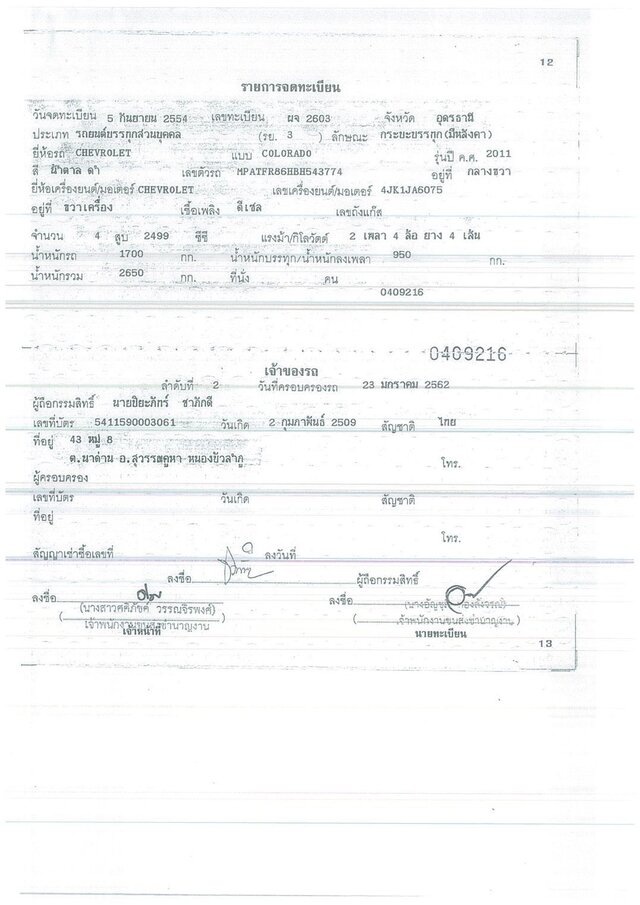 12
รายการจดทะเบียน
วันจดทะเบียน 5 กันยายน 2554 เลขทะเบียน ผจ 2603 จังหวัด อุดรธานี
ประเภท รถยนต์บรรทุกส่วนบุคคล (รย. 3 ) ลักษณะ กระบะบรรทุก(มีหลังคา)
ยี่ห้อรถ CHEVROLET แบบ COLORADO รุ่นปี ค.ศ. 2011
สี น้ำตาล ดำ เลขตัวรถ MPATFR86HBH543774 อยู่ที่ กลางขวา
ยี่ห้อเครื่องยนต์/มอเตอร์ CHEVROLET เลขเครื่องยนต์/มอเตอร์ 4JK1JA6075
อยู่ที่ ขวาเครื่อง เชื้อเพลิง ดีเซล เลขถังแก๊ส
จำนวน 4 สูบ 2499 ซีซี แรงม้า/กิโลวัตต์ 2 เพลา 4 ล้อ ยาง 4 เส้น
น้ำหนักรถ 1700 กก. น้ำหนักบรรทุก/น้ำหนักลงเพลา 950 กก.
น้ำหนักรวม 2650 กก. ที่นั่ง คน
0409216
0409216
เจ้าของรถ
ลำดับที่ 2 วันที่ครอบครองรถ 23 มกราคม 2562
ผู้ถือกรรมสิทธิ์ นายปิยะภัทร์ ชาภักดี
เลขที่บัตร 5411590003061 วันเกิด 2 กุมภาพันธ์ 2509 สัญชาติ ไทย
ที่อยู่ 43 หมู่ 8
ต.นาด่าน อ.สุวรรณคูหา หนองบัวลำภู โทร.
ผู้ครอบครอง
เลขที่บัตร วันเกิด สัญชาติ
ที่อยู่
โทร.
สัญญาเช่าซื้อเลขที่ ลงวันที่
ลงชื่อ ผู้ถือกรรมสิทธิ์
ลงชื่อ ลงชื่อ
(นางสาวศศิภัชค์ วรรณจิรพงศ์)
เจ้าพนักงานขนส่งชำนาญงาน เจ้าพนักงานขนส่งชำนาญงาน
เจ้าหน้าที่ นายทะเบียน
13